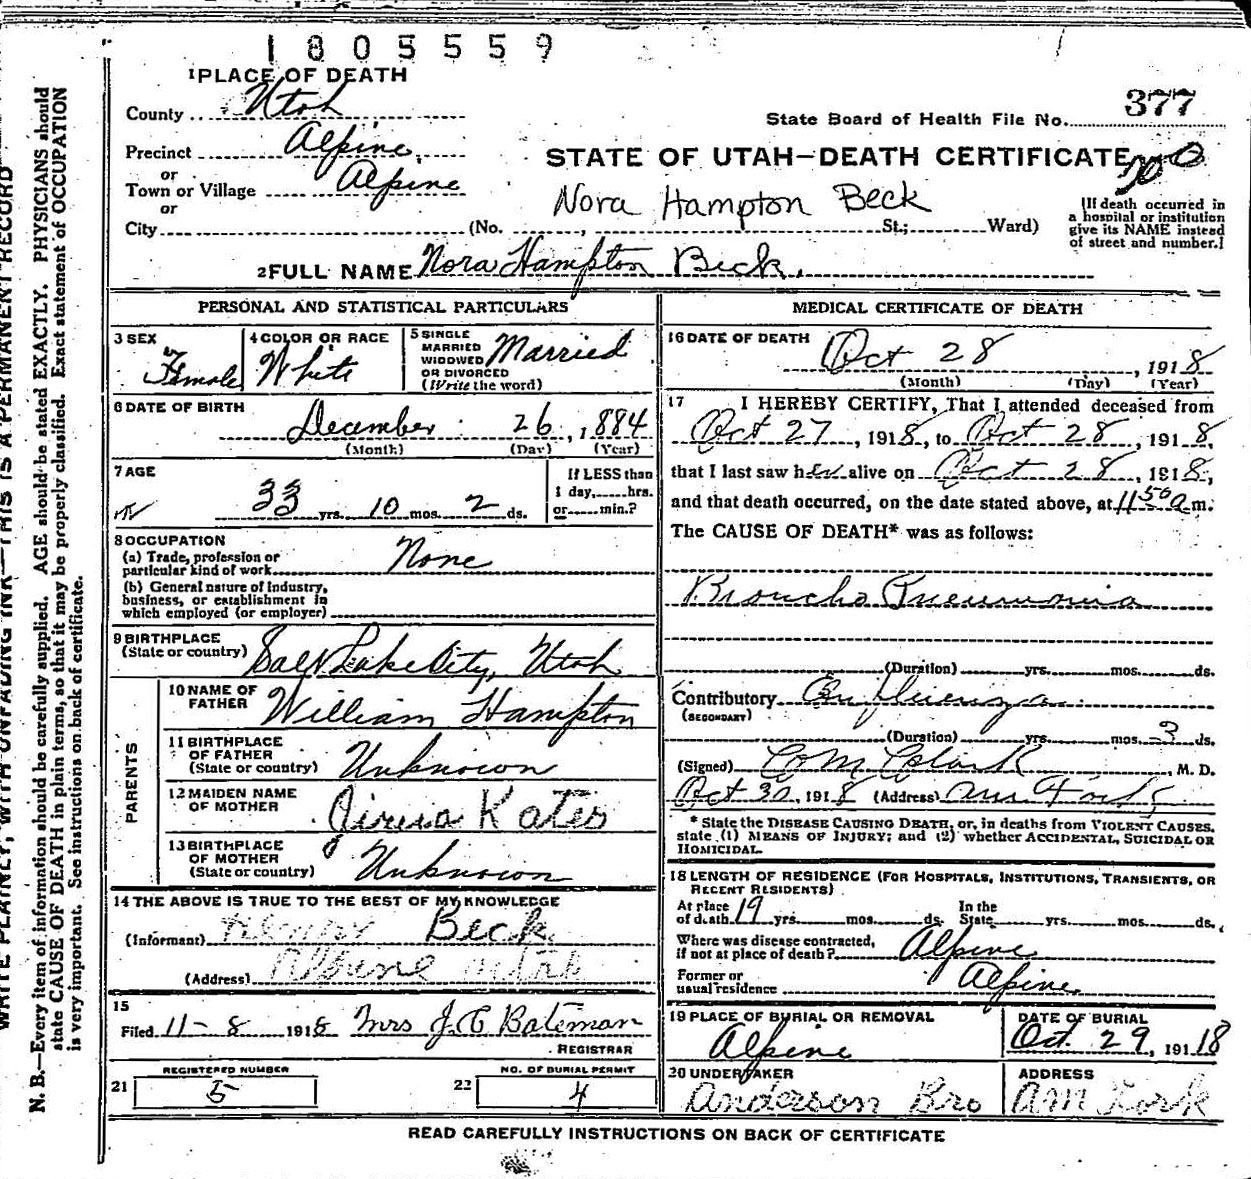 1805559
1 PLACE OF DEATH
County Utah
377
State Board of Health File No.
Precinct Alpine
or
STATE OF UTAH—DEATH CERTIFICATE
Town or Village Alpine
or
Nora Hampton Beck
City (No. , St.; Ward)
[If death occurred in
a hospital or institution
give its NAME instead
of street and number.]
2 FULL NAME Nora Hampton Beck.
PERSONAL AND STATISTICAL PARTICULARS
3 SEX
Female
4 COLOR OR RACE
White
5 SINGLE
MARRIED
WIDOWED
OR DIVORCED
(Write the word)
Married
6 DATE OF BIRTH
December 26, 1884
(Month) (Day) (Year)
7 AGE
33 yrs. 10 mos. 2 ds.
If LESS than
1 day, hrs.
or min.?
8 OCCUPATION
(a) Trade, profession or
particular kind of work None
(b) General nature of industry,
business, or establishment in
which employed (or employer)
9 BIRTHPLACE
(State or country) Salt Lake City, Utah
PARENTS
10 NAME OF
FATHER William Hampton
11 BIRTHPLACE
OF FATHER
(State or country) Unknown
12 MAIDEN NAME
OF MOTHER Kates
13 BIRTHPLACE
OF MOTHER
(State or country) Unknown
14 THE ABOVE IS TRUE TO THE BEST OF MY KNOWLEDGE
(Informant) Henry Beck
(Address) Alpine Utah
15
Filed 11-8 1918 Mrs J. E. Bateman
REGISTRAR
REGISTERED NUMBER
21 5
NO. OF BURIAL PERMIT
22 4
MEDICAL CERTIFICATE OF DEATH
16 DATE OF DEATH
Oct 28, 1918
(Month) (Day) (Year)
17 I HEREBY CERTIFY, That I attended deceased from
Oct 27, 1918, to Oct 28, 1918,
that I last saw her alive on Oct 28, 1918,
and that death occurred, on the date stated above, at 11 50 a m.
The CAUSE OF DEATH* was as follows:
Broncho Pneumonia
(Duration) yrs. mos. ds.
Contributory Influenza
(SECONDARY)
(Duration) yrs. mos. 3 ds.
(Signed) Clark, M. D.
Oct 30, 1918 (Address) Am Fork
* State the DISEASE CAUSING DEATH, or, in deaths from VIOLENT CAUSES,
state (1) MEANS OF INJURY; and (2) whether ACCIDENTAL, SUICIDAL OR
HOMICIDAL.
18 LENGTH OF RESIDENCE (FOR HOSPITALS, INSTITUTIONS, TRANSIENTS, OR
RECENT RESIDENTS)
At place
of death 19 yrs. mos. ds.
In the
State yrs. mos. ds.
Where was disease contracted,
if not at place of death? Alpine
Former or
usual residence Alpine
19 PLACE OF BURIAL OR REMOVAL
Alpine
DATE OF BURIAL
Oct. 29, 191 18
20 UNDERTAKER
Anderson Bro
ADDRESS
Am Fork
READ CAREFULLY INSTRUCTIONS ON BACK OF CERTIFICATE
WRITE PLAINLY, WITH UNFADING INK—THIS IS A PERMANENT RECORD
N. B.—Every item of information should be carefully supplied. AGE should be stated EXACTLY. PHYSICIANS should
state CAUSE OF DEATH in plain terms, so that it may be properly classified. Exact statement of OCCUPATION
is very important. See instructions on back of certificate.